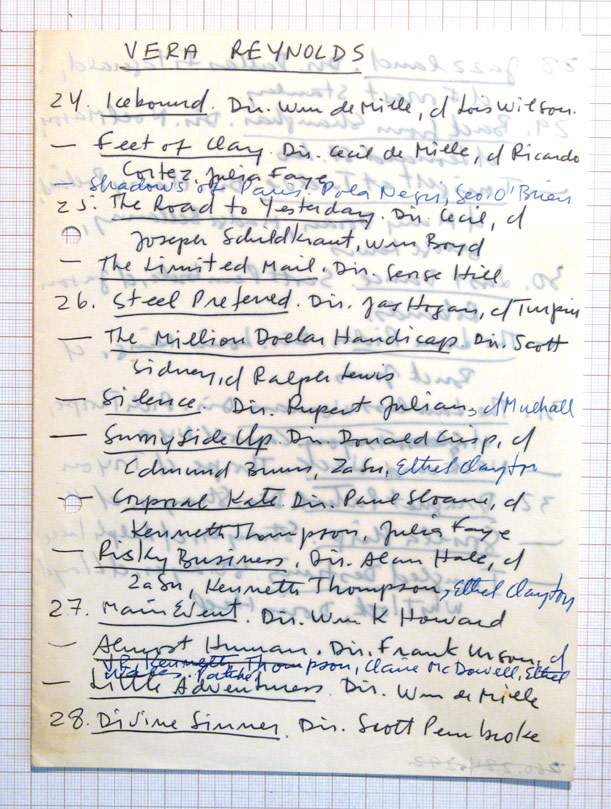 VERA REYNOLDS
24. Icebound. Dir. Wm de Mille, d Lois Wilson.
— Feet of Clay. Dir. Cecil de Mille, d Ricardo
Cortez, Julia Faye
— Shadows of Paris, Pola Negri, Geo O'Brien
25. The Road to Yesterday. Dir. Cecil, d
Joseph Schildkraut, Wm Boyd
— The Limited Mail. Dir. George Hill
26. Steel Preferred. Dir. Jas Hogan, d Turpin
— The Million Dollar Handicap Dir. Scott
Sidney, d Ralph Lewis
— Silence. Dir. Rupert Julian, d Mulhall
— Sunny Side Up. Dir. Donald Crisp, d
Edmund Burns, ZaSu, Ethel Clayton
— Corporal Kate Dir. Paul Sloane, d
Kenneth Thompson, Julia Faye
— Risky Business. Dir. Alan Hale, d
ZaSu, Kenneth Thompson, Ethel Clayton
27. Main Event. Dir. Wm K Howard
— Almost Human. Dir. Frank Urson, d
Kenneth Thompson, Claire McDowell, Ethel
Wales.
— Little Adventuress. Dir. Wm de Mille
28. Divine Sinner. Dir. Scott Pembroke